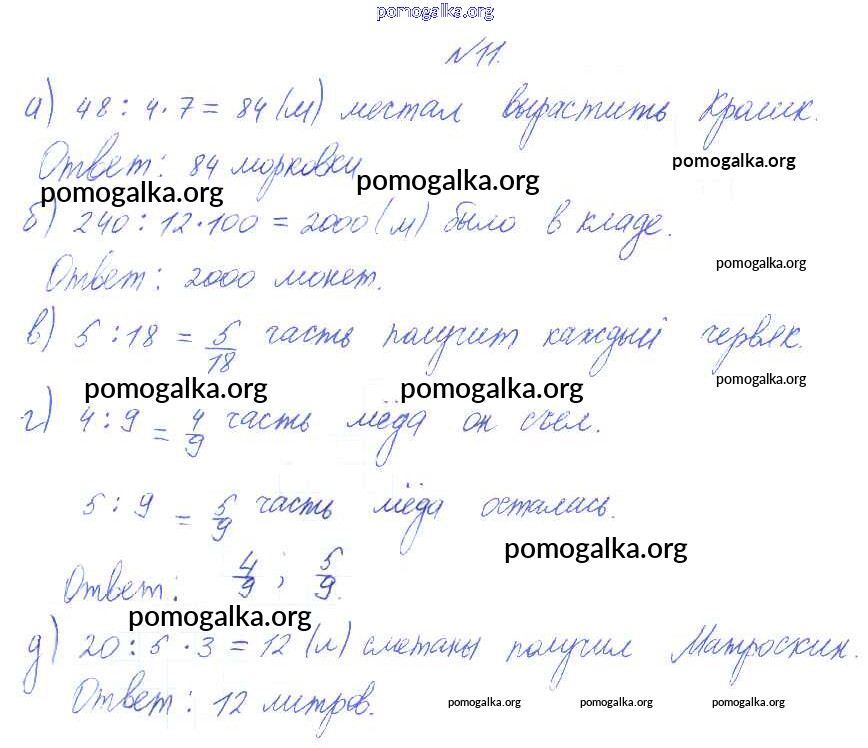 pomogalka.org
№11.
а) 48 : 4 · 7 = 84 (м) мечтал вырастить Кролик.
Ответ: 84 морковки
pomogalka.org pomogalka.org pomogalka.org
б) 240 : 12 · 100 = 2000 (м) было в кладе.
Ответ: 2000 монет.
pomogalka.org
в) 5 : 18 = 5/18 часть получит каждый червяк.
pomogalka.org pomogalka.org pomogalka.org
г) 4 : 9 = 4/9 часть мёда он съел.
5 : 9 = 5/9 часть мёда осталась.
pomogalka.org
Ответ: 4/9 ; 5/9.
pomogalka.org
д) 20 : 5 · 3 = 12 (л) сметаны получил Матроскин.
Ответ: 12 литров.
pomogalka.org pomogalka.org pomogalka.org